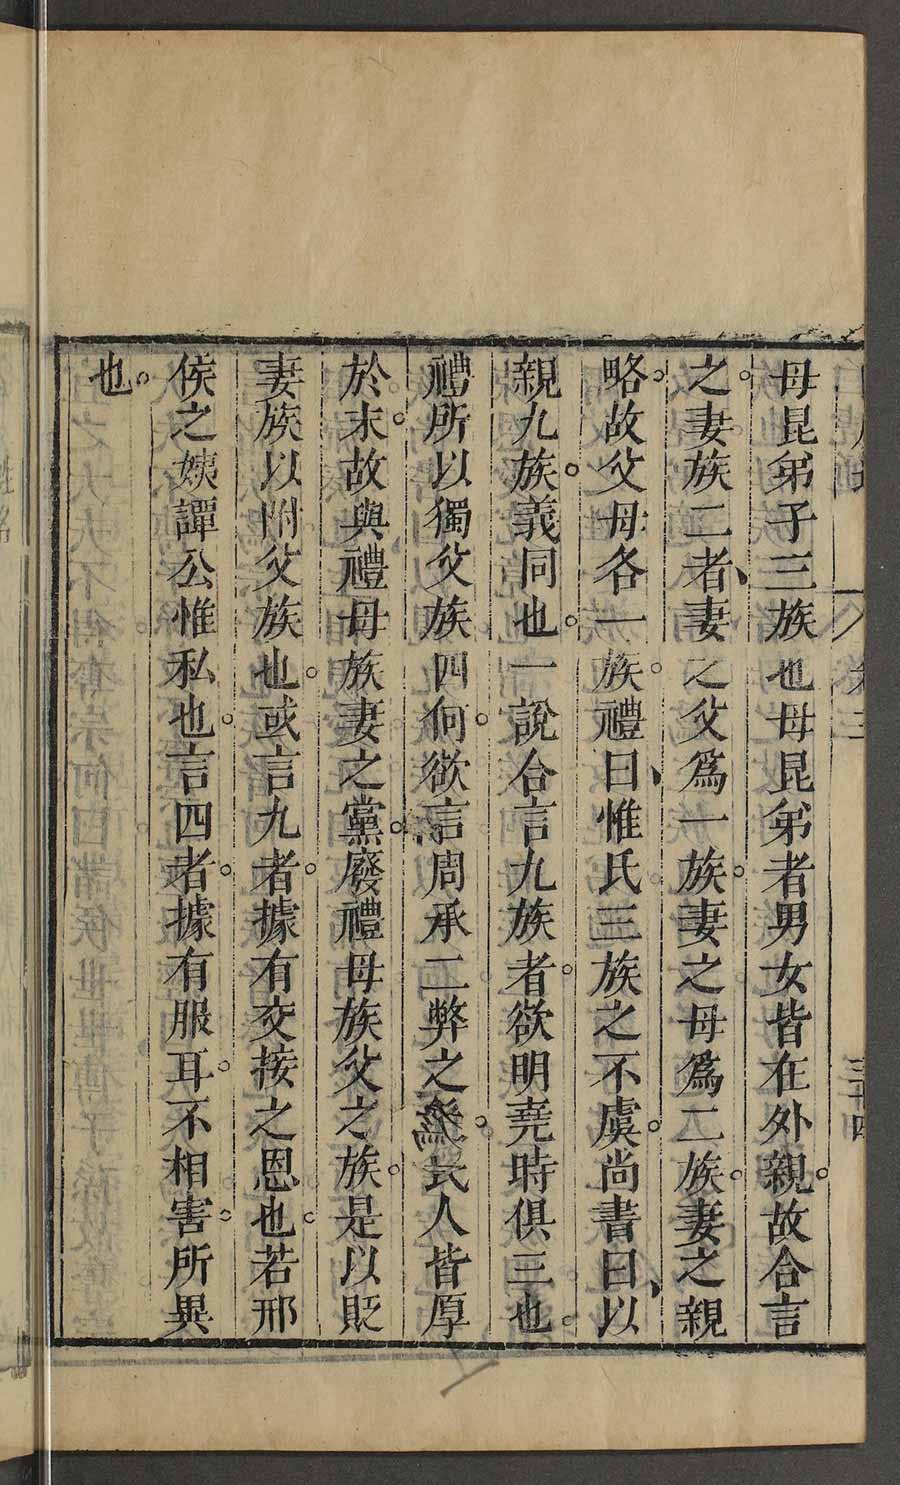 母昆弟子三族也母昆弟者男女皆在外親。故合言
之。妻族二者、妻之父爲一族。妻之母爲二族。妻之親
略。故父母各一族。禮曰、惟氏三族之不虞。尚書曰、以
親九族。義同也。一說合言九族者。欲明堯時俱三也。
禮所以獨父族四何。欲言周承二弊之。民人皆厚
於末。故與禮母族妻之黨。廢禮母族父之族。是以貶
妻族以附父族也。或言九者。據有交接之恩也。若邢
侯之姨譚公惟私也。言四者。據有服耳。不相害。所異
也。